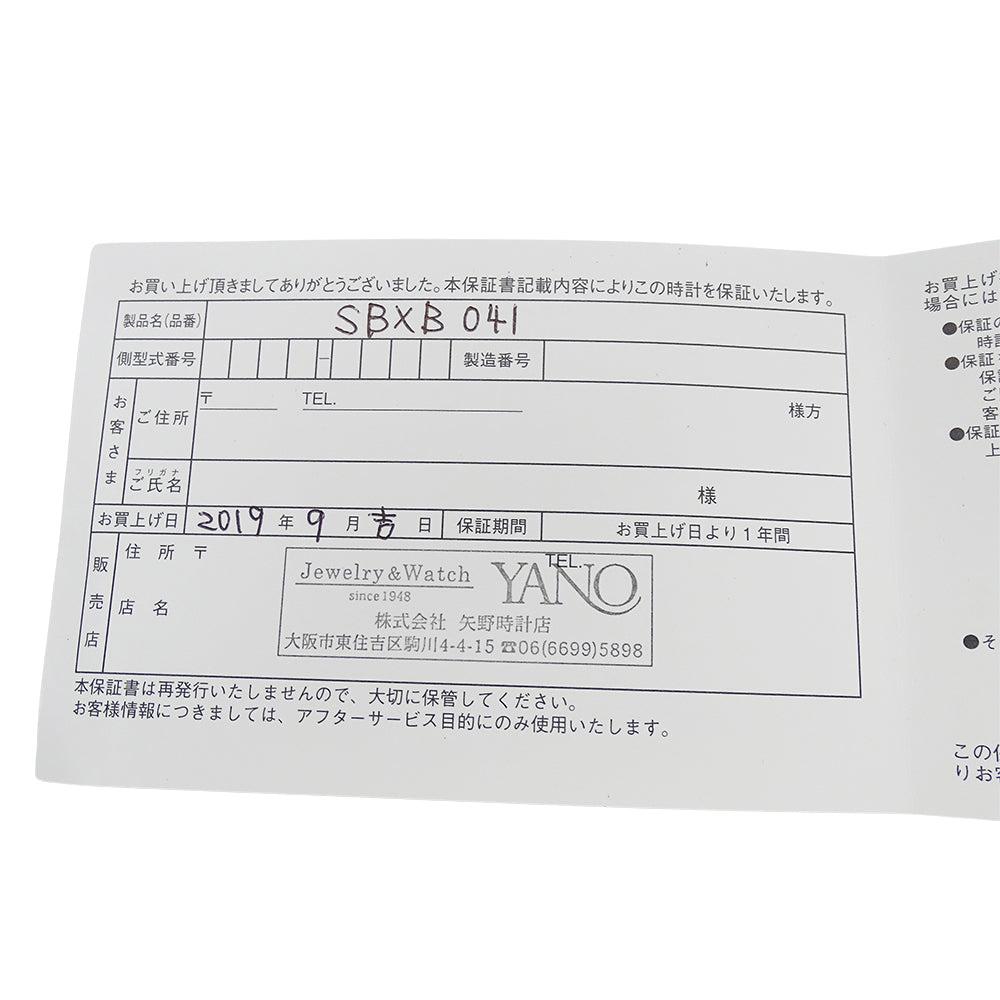 お買い上げ頂きましてありがとうございました。本保証書記載内容によりこの時計を保証いたします。
製品名(品番) SBXB 041
側型式番号 － 製造番号
お客さま
ご住所 〒 TEL. 様方
フリガナ
ご氏名 様
お買上げ日 2019 年 9 月 吉 日 保証期間 お買上げ日より1年間
販売店
住所 〒 TEL.
店名
Jewelry & Watch YANO
since 1948
株式会社 矢野時計店
大阪市東住吉区駒川4-4-15 ☎06(6699)5898
本保証書は再発行いたしませんので、大切に保管してください。
お客様情報につきましては、アフターサービス目的にのみ使用いたします。
お買上げ
場合には
●保証の
時計
●保証
保証
ご
客
●保証
上
●そ
この保
りお客